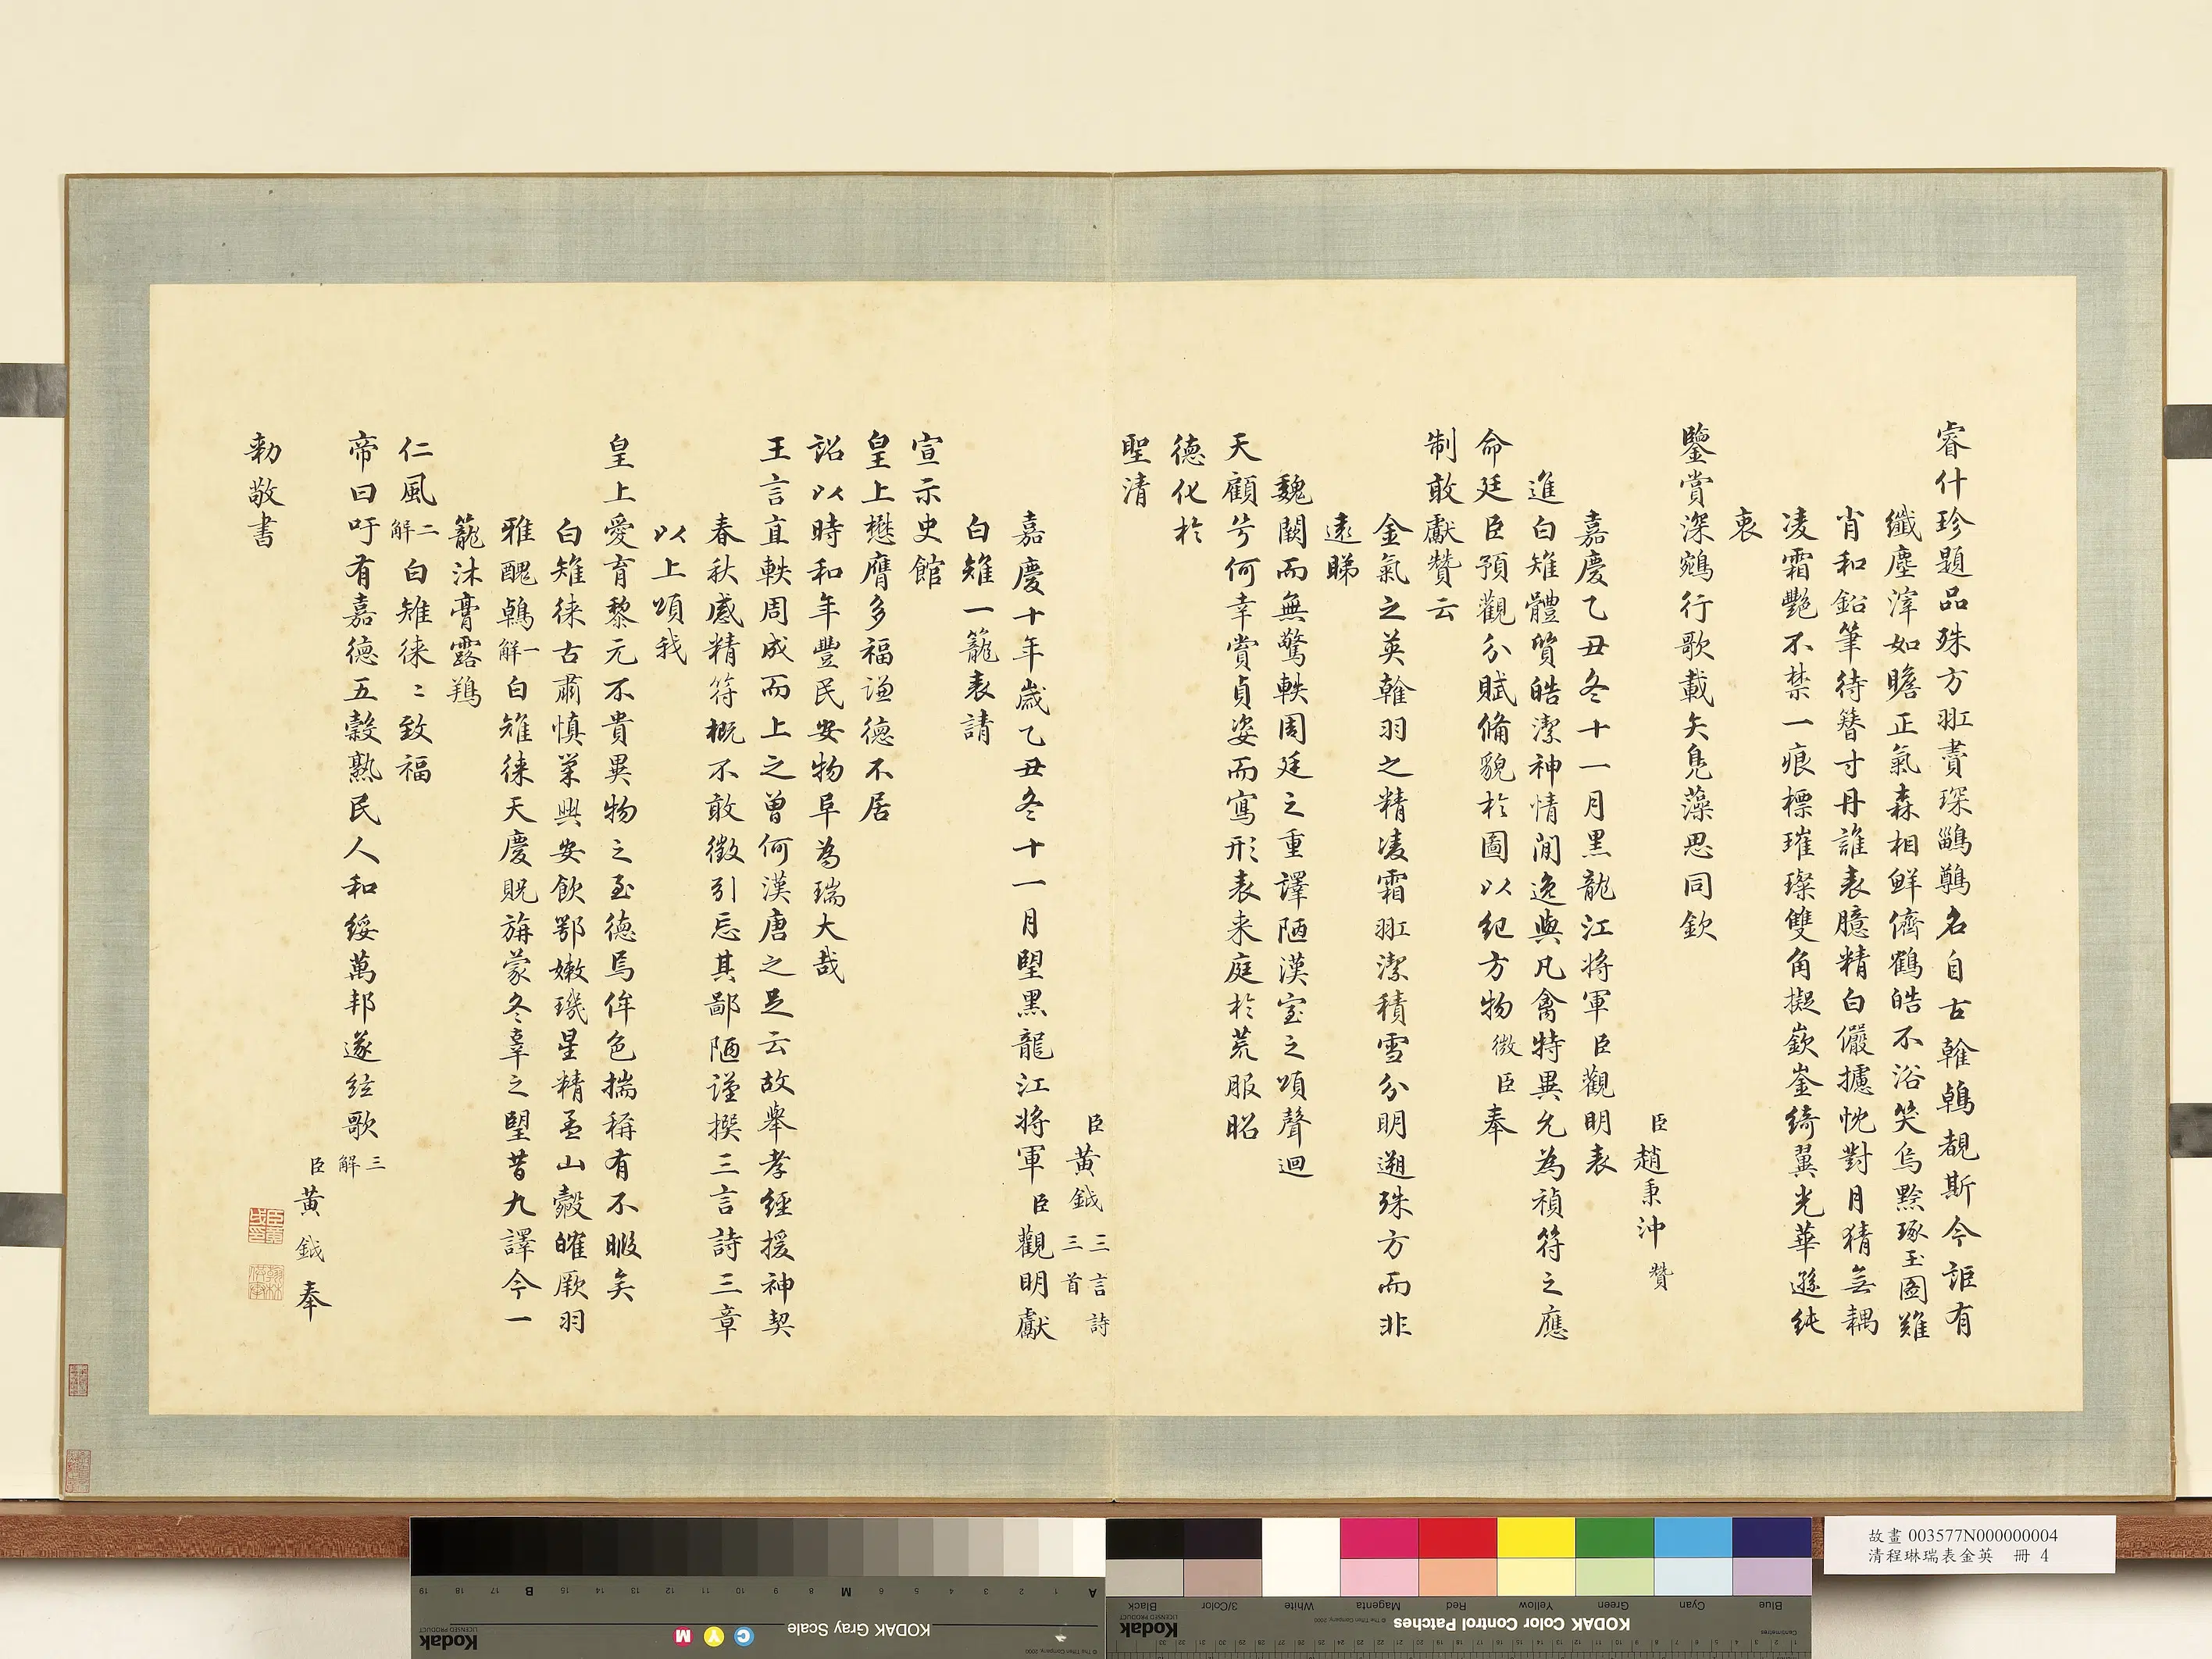 睿什珍題品殊方羾賮琛鷫鷞名自古雗鵫覩斯今詎有
纖塵滓如瞻正氣森相鮮儕鶴皓不浴笑烏黔琢玉圖難
肖和鉛筆待簪寸丹誰表臆精白儼攄忱對月猜無耦
凌霜艷不禁一痕標璀璨雙角擬嶔崟綺翼光華遜純
衷
鑒賞深鵷行歌載矢鳧藻思同欽
臣趙秉沖贊
嘉慶乙丑冬十一月黑龍江將軍臣觀明表
進白雉體質皓潔神情閒逸與凡禽特異允為禎符之應
命廷臣預觀分賦俻貌於圖以紀方物微臣奉
制敢獻贊云
金氣之英雗羽之精凌霜羾潔積雪分明遡殊方而非
遠睇
魏闕而無驚軼周廷之重譯陋漢室之頌聲迴
天顧兮何幸賞貞姿而寫形表来庭於荒服昭
德化於
聖清
臣黃鉞三言詩三首
嘉慶十年歲乙丑冬十一月朢黑龍江將軍臣觀明獻
白雉一籠表請
宣示史館
皇上懋膺多福謙德不居
詔以時和年豐民安物阜為瑞大哉
王言直軼周成而上之曾何漢唐之足云故舉孝經援神契
春秋感精符概不敢徵引忘其鄙陋謹撰三言詩三章
以上頌我
皇上愛育黎元不貴異物之至德焉侔色揣稱有不暇矣
白雉徠古肅慎巢興安飲鄂嫩璣星精孟山㲉皠厥羽
雅醜鵫解一白雉徠天慶貺旃蒙冬辜之朢昔九譯今一
籠沐膏露翔
仁風解二白雉徠〻致福
帝曰吁有嘉德五穀熟民人和綏萬邦遂絃歌
解三
臣黃鉞奉
勅敬書
臣黃鉞印
故畫 003577N000000004
清程琳瑞表金英 冊 4
KODAK Gray Scale
Kodak
LICENSED PRODUCT
© The Tiffen Company, 2000
A 1 2 3 4 5 6 M 8 9 10 11 12 13 14 15 B 17 18 19
C Y M
KODAK Color Control Patches
Kodak
LICENSED PRODUCT
© The Tiffen Company, 2000
Blue Cyan Green Yellow Red Magenta White 3/Color Black
Centimetres